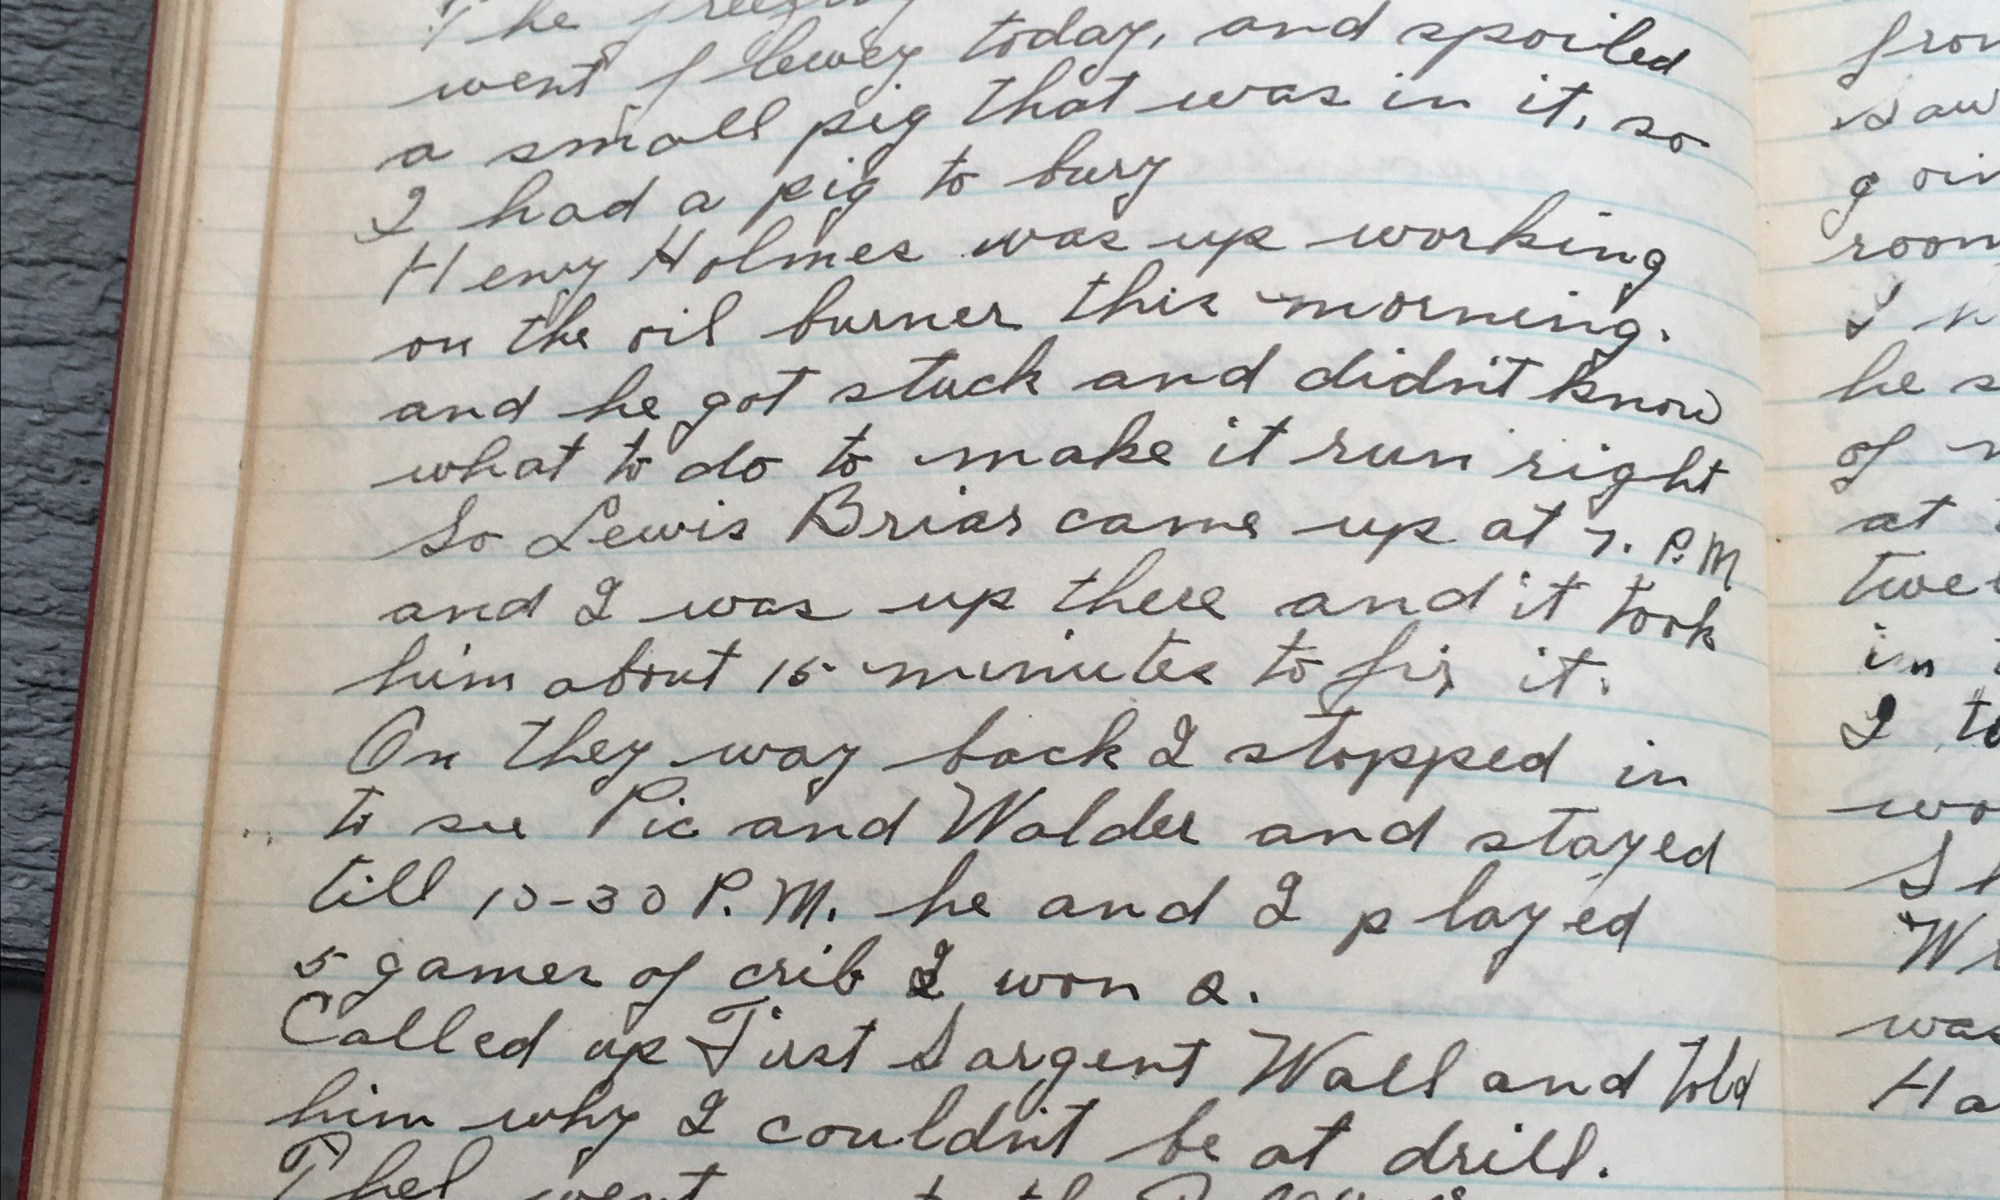 The freezing
went flewey today, and spoiled
a small pig that was in it, so
I had a pig to bury
Henry Holmes was up working
on the oil burner this morning.
and he got stuck and didn't know
what to do to make it run right
So Lewis Briar came up at 7. P.M
and I was up there and it took
him about 15 minutes to fix it.
On they way back I stopped in
to see Pic and Walder and stayed
till 10-30 P.M. he and I played
5 games of crib I won 2.
Called up First Sargent Wall and told
him why I couldn't be at drill.
Thel went
from
saw
he
of
at
in
I
was